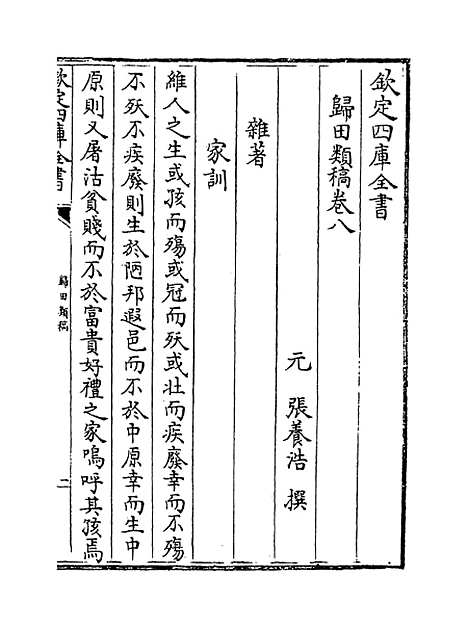 欽定四庫全書
歸田類稿卷八
元 張養浩 撰
雜著
家訓
維人之生或孩而殤或冠而殀或壯而疾廢幸而不殤
不殀不疾廢則生於陋邦遐邑而不於中原幸而生中
原則又屠沽貧賤而不於富貴好禮之家嗚呼其孩焉
欽定四庫全書
歸田類稿
二